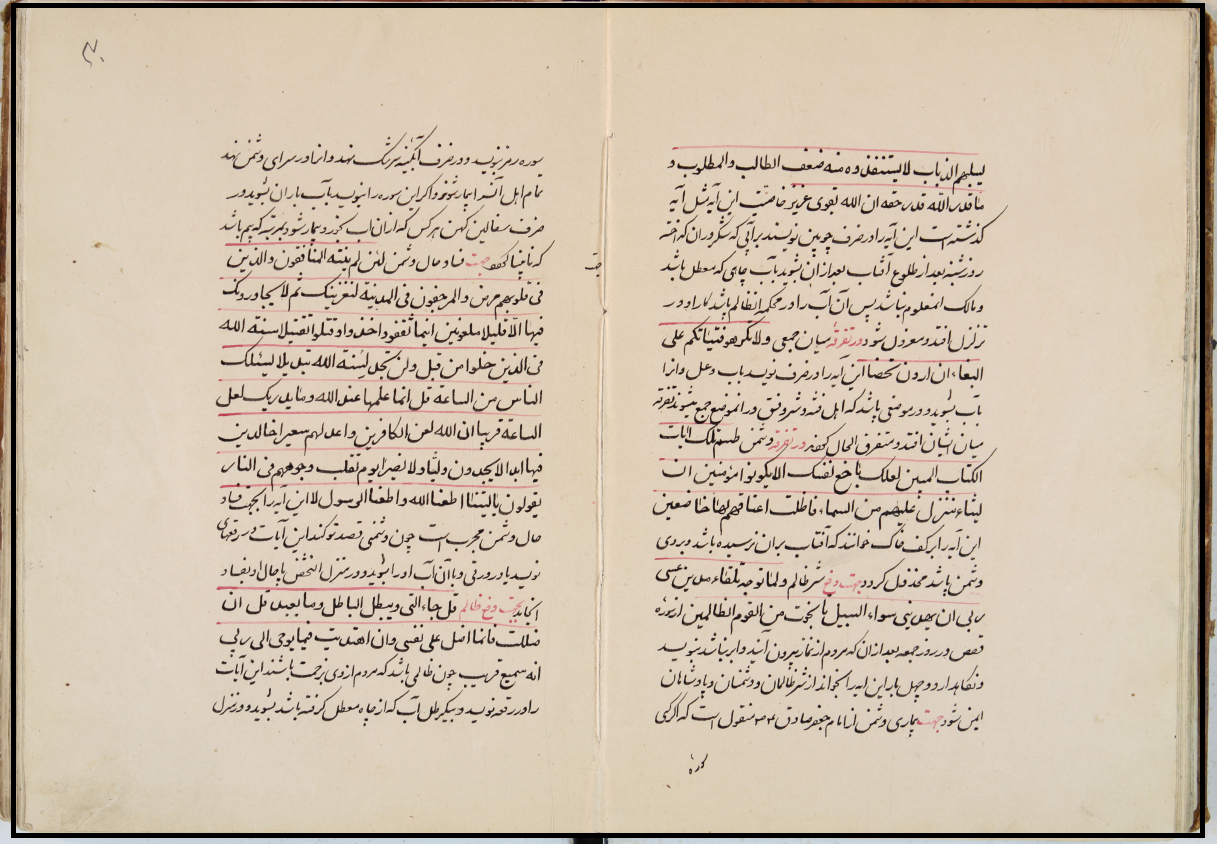 یسلبهم الذباب لا یستنقذوه منه ضعف الطالب والمطلوب و
ما قدر الله قدر حقه ان الله لقوی عزیز خاصیت این آیه مثل آیه
کذشته است این آیه را در ظرف چوبین نویسند برآبی که سکروران که اخته
روز شنبه بعد از طلوع آفتاب بعد ازان بشوید بآب چاهی که معطل باشد
و مالک او معلوم نباشد پس آن آب را در محکمه ان ظالم پاشد کار او در
تزلزل افتد و معزول شود در تفرقه میان جمعی ولا تکرهوا فتیاتکم علی
البغاء ان اردن تحصنا این آیه را در ظرف نویسد بآب و عسل و انرا
بآب بشوید و در موضعی پاشد که اهل فتنه و شر و فسق در انموضع جمع میشوند تفرقه
میان ایشان افتد و متفرق الحال کهفر در تفرقه دشمن طسم تلک ایات
الکتاب المبین لعلک باخع نفسک الا یکونوا مؤمنین ان
لنشاء ننزل علیهم من السماء فظلت اعناقهم لها خاضعین
این آیه را بر کف خاک خوانند که آفتاب بران نرسیده باشد و بروی
دشمن پاشد مخذول کردد جهت دفع شر ظالم ولما توجه تلقاء مدین عسی
ربی ان یهدینی سواء السبیل تا نجوت من القوم الظالمین از سوره
قصص در روز جمعه بعد از ان که مردم از نماز بیرون آیند و ابر نباشد بنویسد
و نکاهدارد و چهل بار این ایه را بخواند از شر ظالمان و دشمنان و پادشاهان
ایمن شود جهت بیماری دشمن از امام جعفر صادق ع منقول است که اگر کسی
سوره
۳۰
سوره رمز بنویسد و در ظرف آبکینه سرشک نهد و انرا در سرای دشمن نهد
تمام اهل آنسرا بیمار شوند و اگر این سوره را بنویسد بآب باران بشوید در
ظرف سفالین کهن هر کس که از ان اب بخورد بیمار شود بمرتبه که بیم باشد
که نابینا کهفر جهت فساد حال دشمن لئن لم ینته المنافقون والذین
فی قلوبهم مرض والمرجفون فی المدینة لنغرینک ثم لا یجاورونک
فیها الا قلیلا ملعونین اینما ثقفوا اخذوا و قتلوا تقتیلا سنة الله
فی الذین خلوا من قبل ولن تجد لسنة الله تبدیلا یسئلک
الناس من الساعة قل انما علمها عند الله وما یدریک لعل
الساعة قریبا ان الله لعن الکافرین واعد لهم سعیرا خالدین
فیها ابدا لا یجدون ولیا ولا نصیرا یوم تقلب وجوههم فی النار
یقولون یا لیتنا اطعنا الله واطعنا الرسول لا این آیه را بجهت فساد
حال دشمن مجرب است چون دشمنی قصد تو کند این آیات در رقعهای
نویسد یا در ورقی و با ان آب اورا بشوید و در منزل انشخص پاچال او بفساد
انجامد بجهت دفع ظالم قل جاء الحق ویبطل الباطل وما یعید قل ان
ضللت فانما اضل علی نفسی وان اهتدیت فبما یوحی الی ربی
انه سمیع قریب چون ظالمی باشد که مردم از وی بزحمت باشند این آیات
را در رقعه نویسد و بیکرطل آب که از چاه معطل کرفته باشد بشوید و در منزل